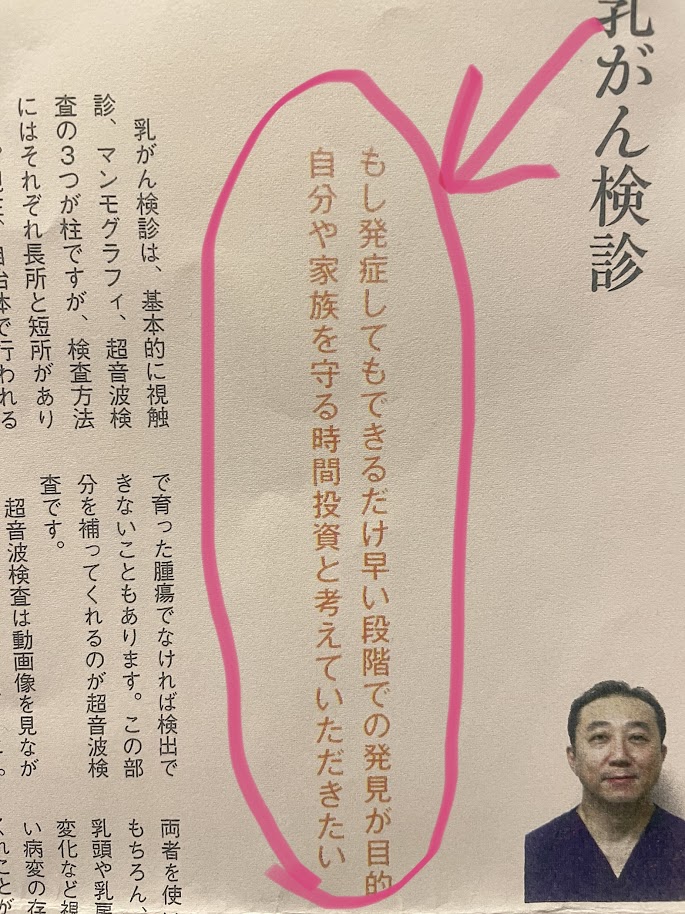 乳がん検診
もし発症してもできるだけ早い段階での発見が目的
自分や家族を守る時間投資と考えていただきたい
乳がん検診は、基本的に視触
診、マンモグラフィ、超音波検
査の3つが柱ですが、検査方法
にはそれぞれ長所と短所があり
自治体で行われる
で育った腫瘍でなければ検出で
きないこともあります。この部
分を補ってくれるのが超音波検
査です。
超音波検査は動画像を見なが
両者を使い
もちろん、
乳頭や乳房
変化など視
い病変の存